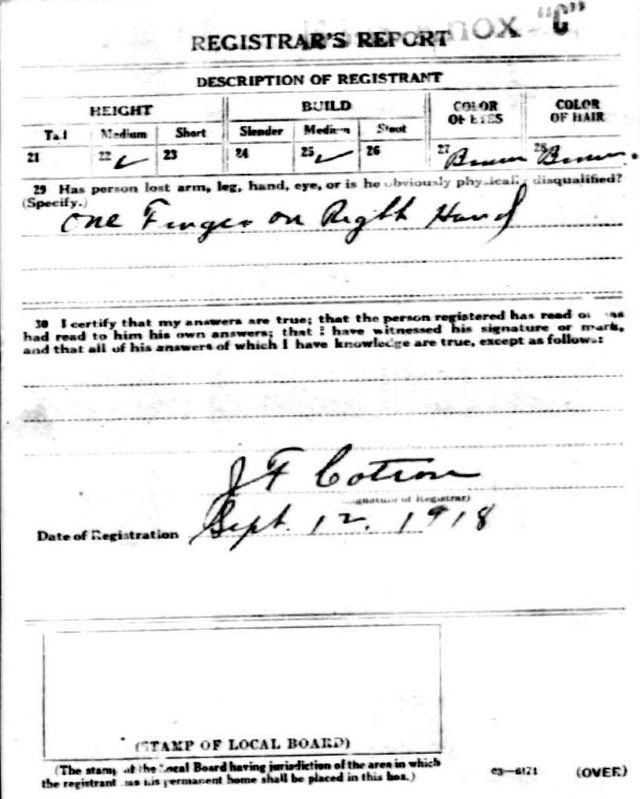 nox "C"
REGISTRAR'S REPORT
DESCRIPTION OF REGISTRANT
HEIGHT BUILD COLOR OF EYES COLOR OF HAIR
Tall Medium Short Slender Medium Stout
21 22 ✓ 23 24 25 ✓ 26 27 Brown 28 Brown.
29 Has person lost arm, leg, hand, eye, or is he obviously physically disqualified?
(Specify.)
One Finger on Right Hand
30 I certify that my answers are true; that the person registered has read or has
had read to him his own answers; that I have witnessed his signature or mark,
and that all of his answers of which I have knowledge are true, except as follows:
J F Cotron
(Signature of Registrar)
Date of Registration Sept. 12. 1918
(STAMP OF LOCAL BOARD)
(The stamp of the Local Board having jurisdiction of the area in which
the registrant has his permanent home shall be placed in this box.)
03—6171 (OVER)